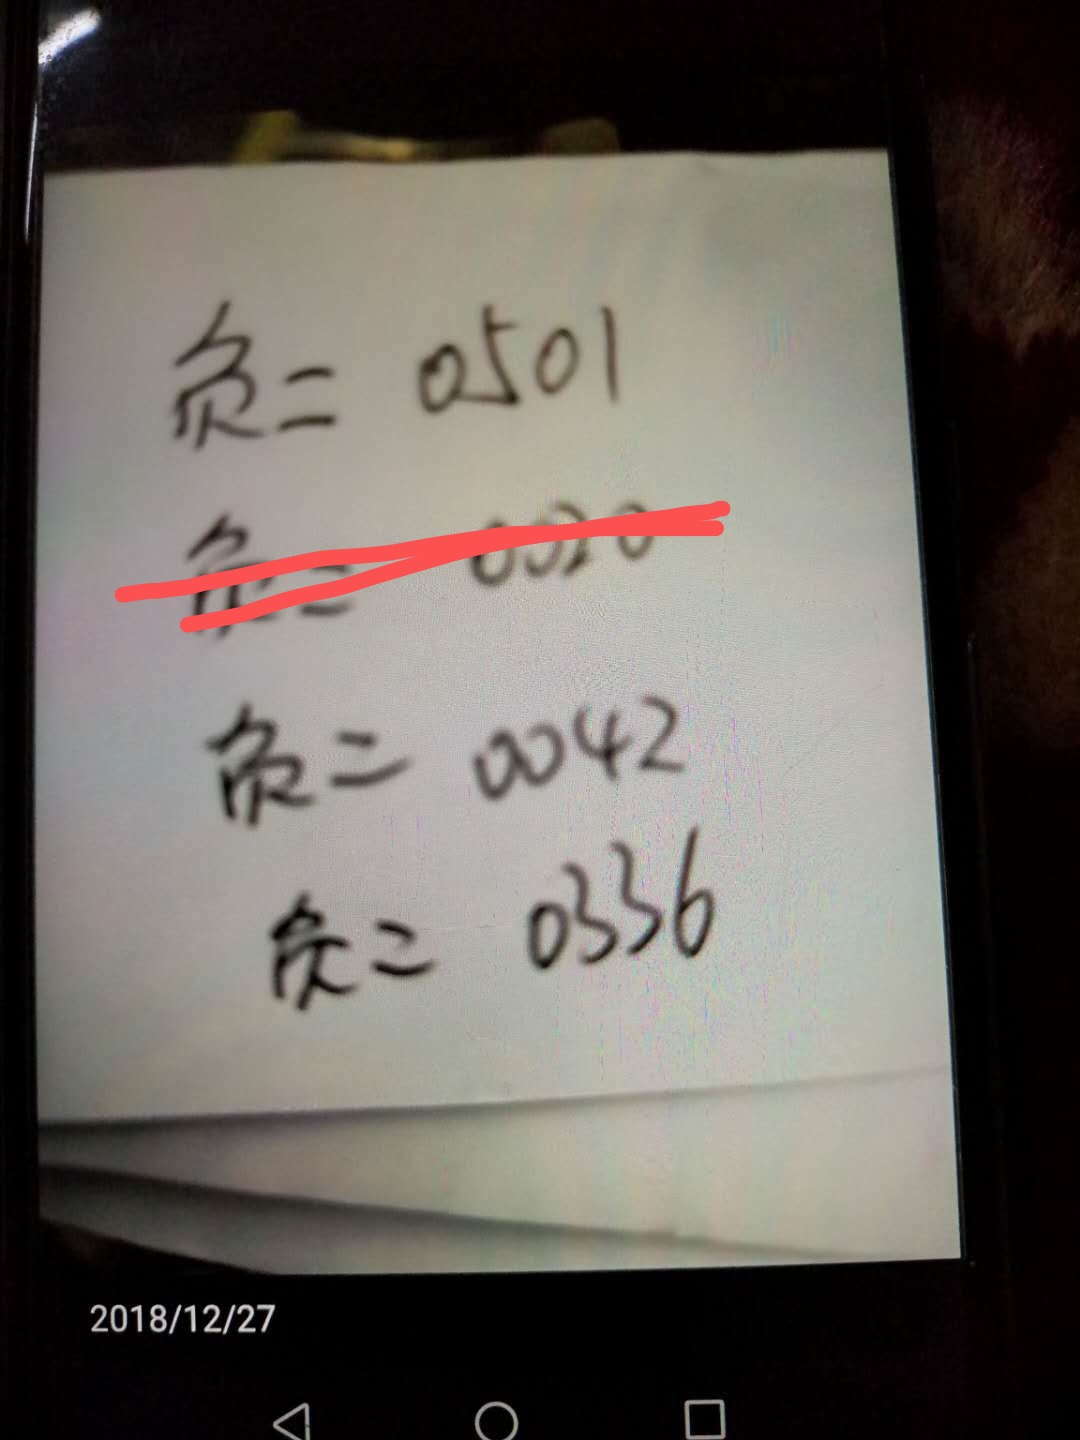 负二 0501
负二
负二 0042
负二 0336
2018/12/27